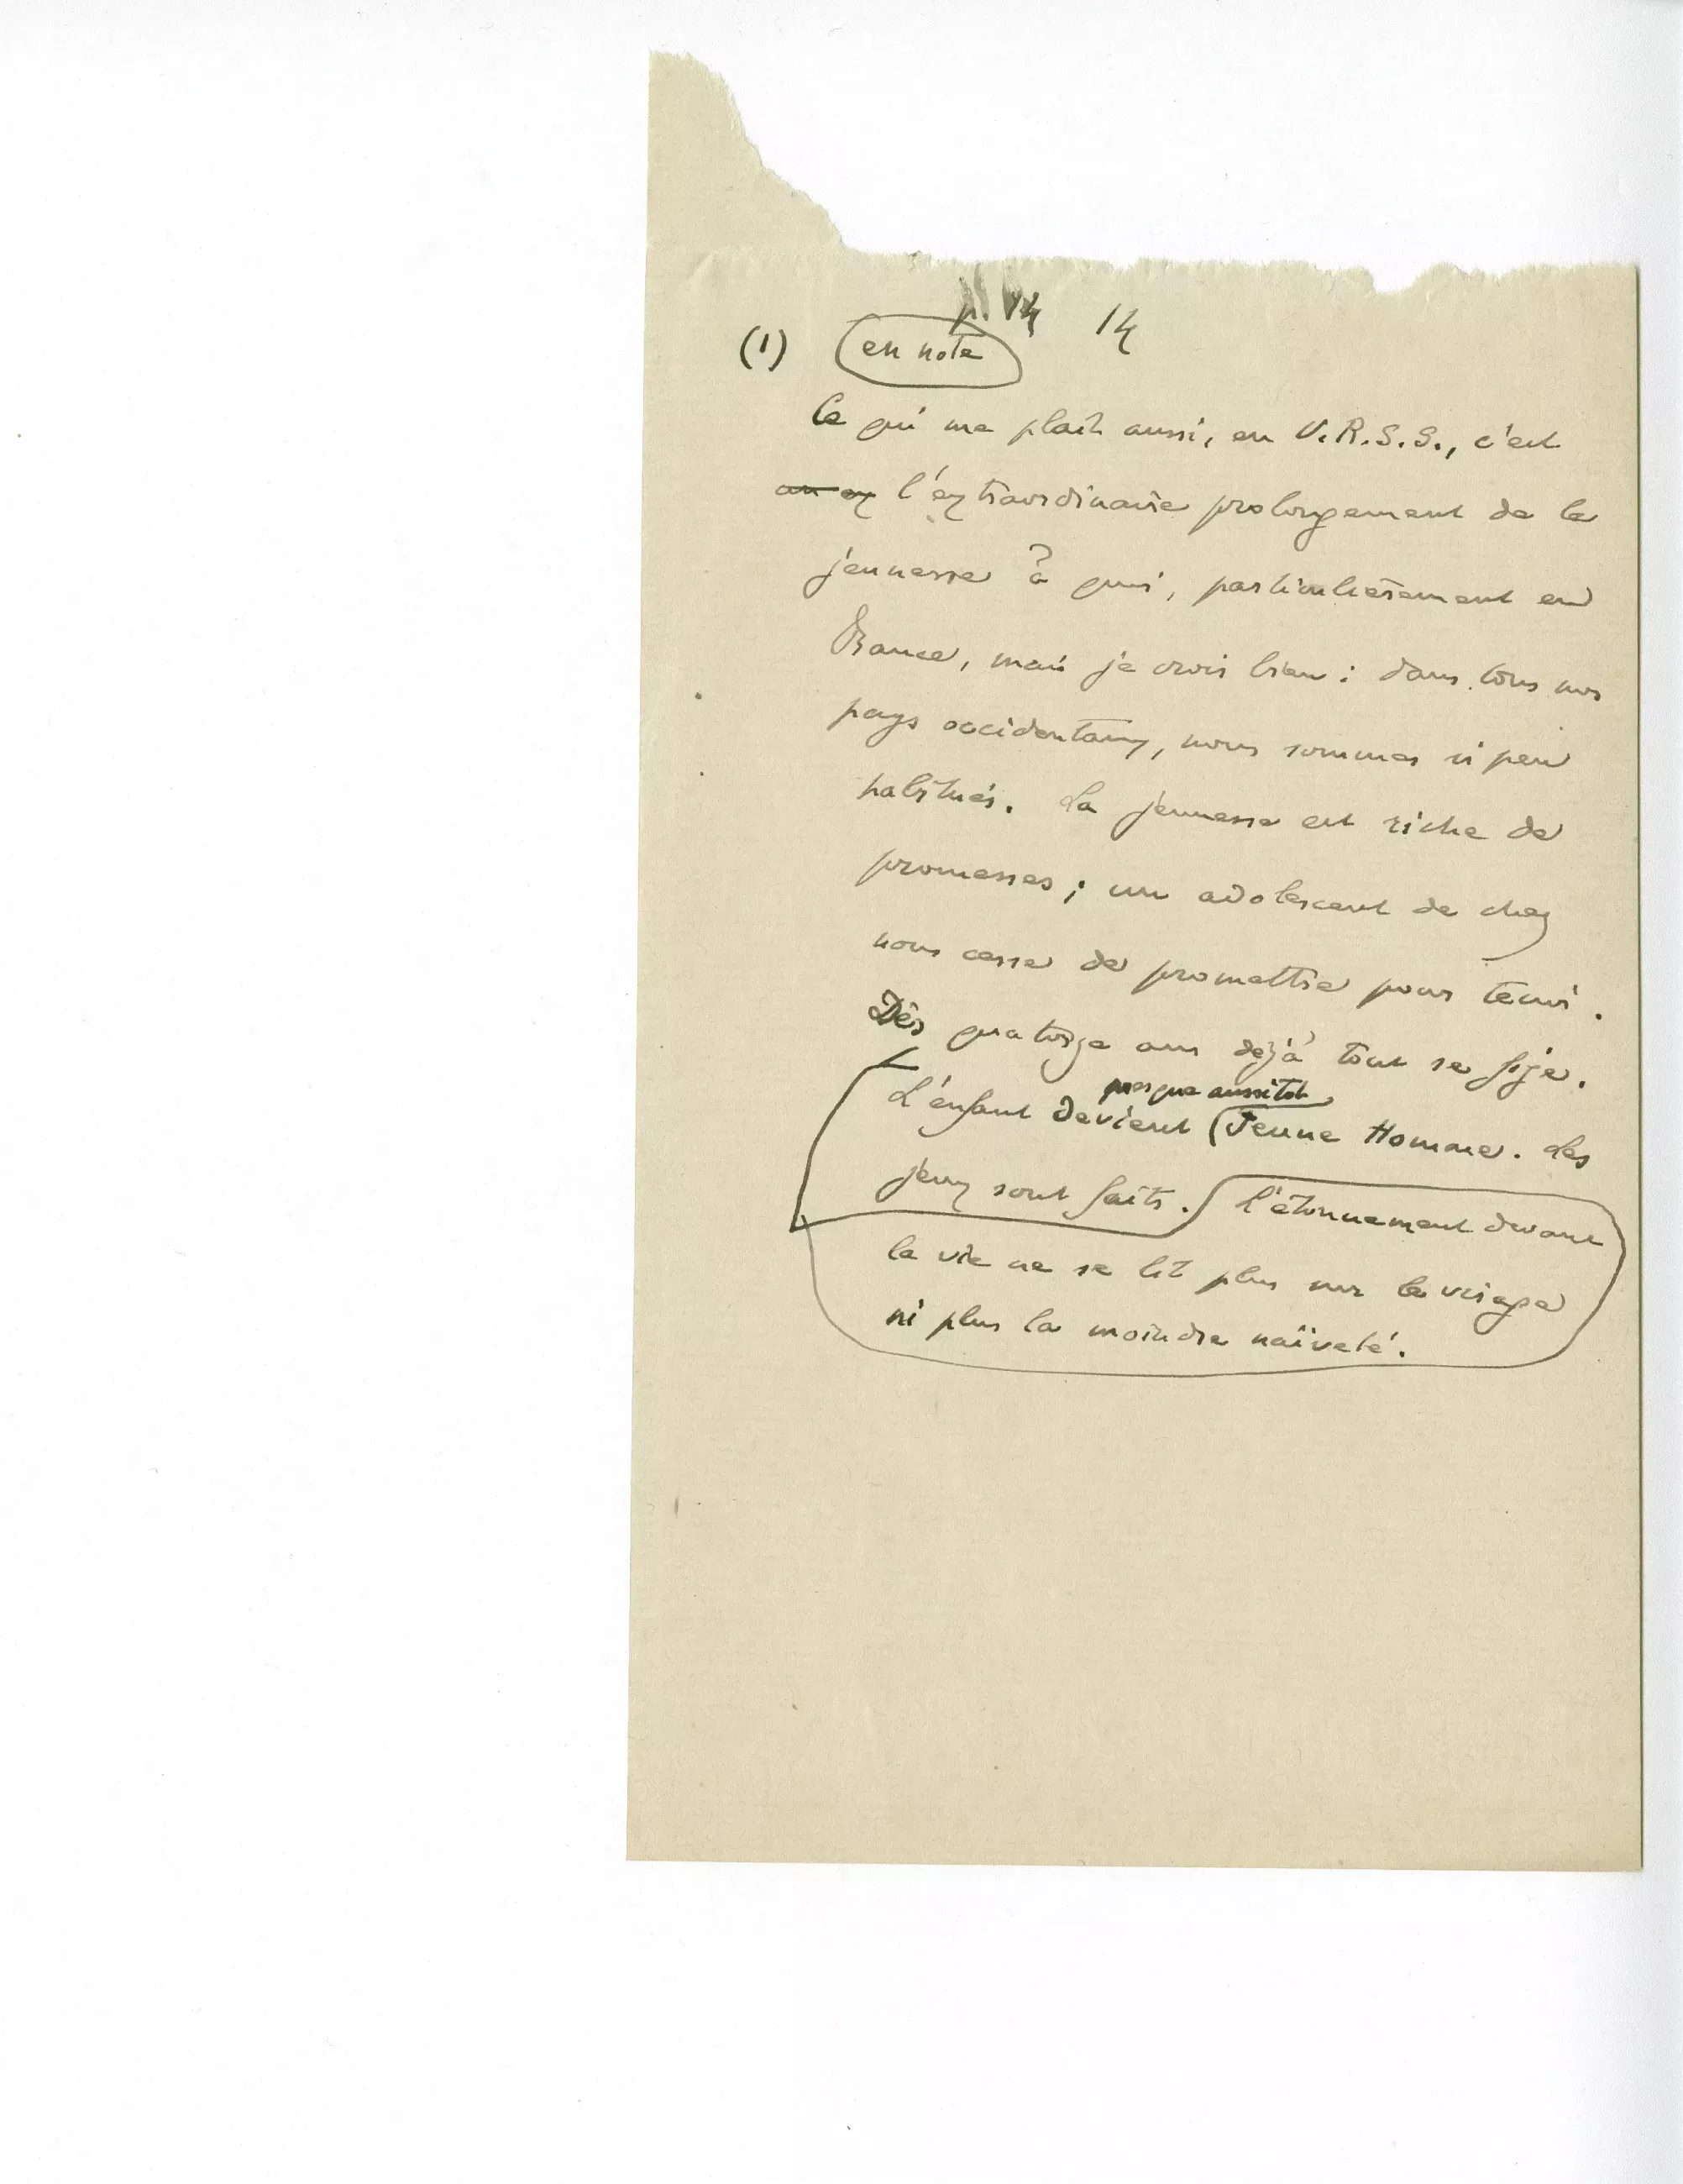 p. 14 14
(1) en note
Ce qui me plaît aussi, en U.R.S.S., c'est
an ex l'extraordinaire prolongement de la
jeunesse à quoi, particulièrement en
France, mais je crois bien : dans tous nos
pays occidentaux, nous sommes si peu
habitués. La jeunesse est riche de
promesses ; un adolescent de chez
nous cesse de promettre pour tenir.
Dès quatorze ans déjà tout se fige.
presque aussitôt
L'enfant devient Jeune Homme. Les
jeux sont faits. L'étonnement devant
la vie ne se lit plus sur le visage
ni plus la moindre naïveté.